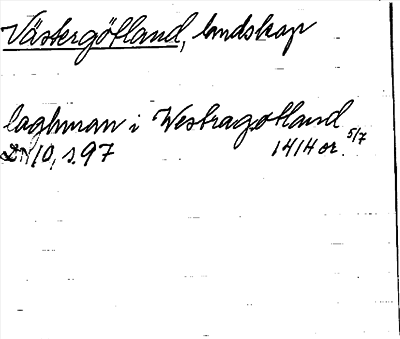 Västergötland, landskap
laghman i Westragotland
DN 10, s. 97 1414 or. 5/7